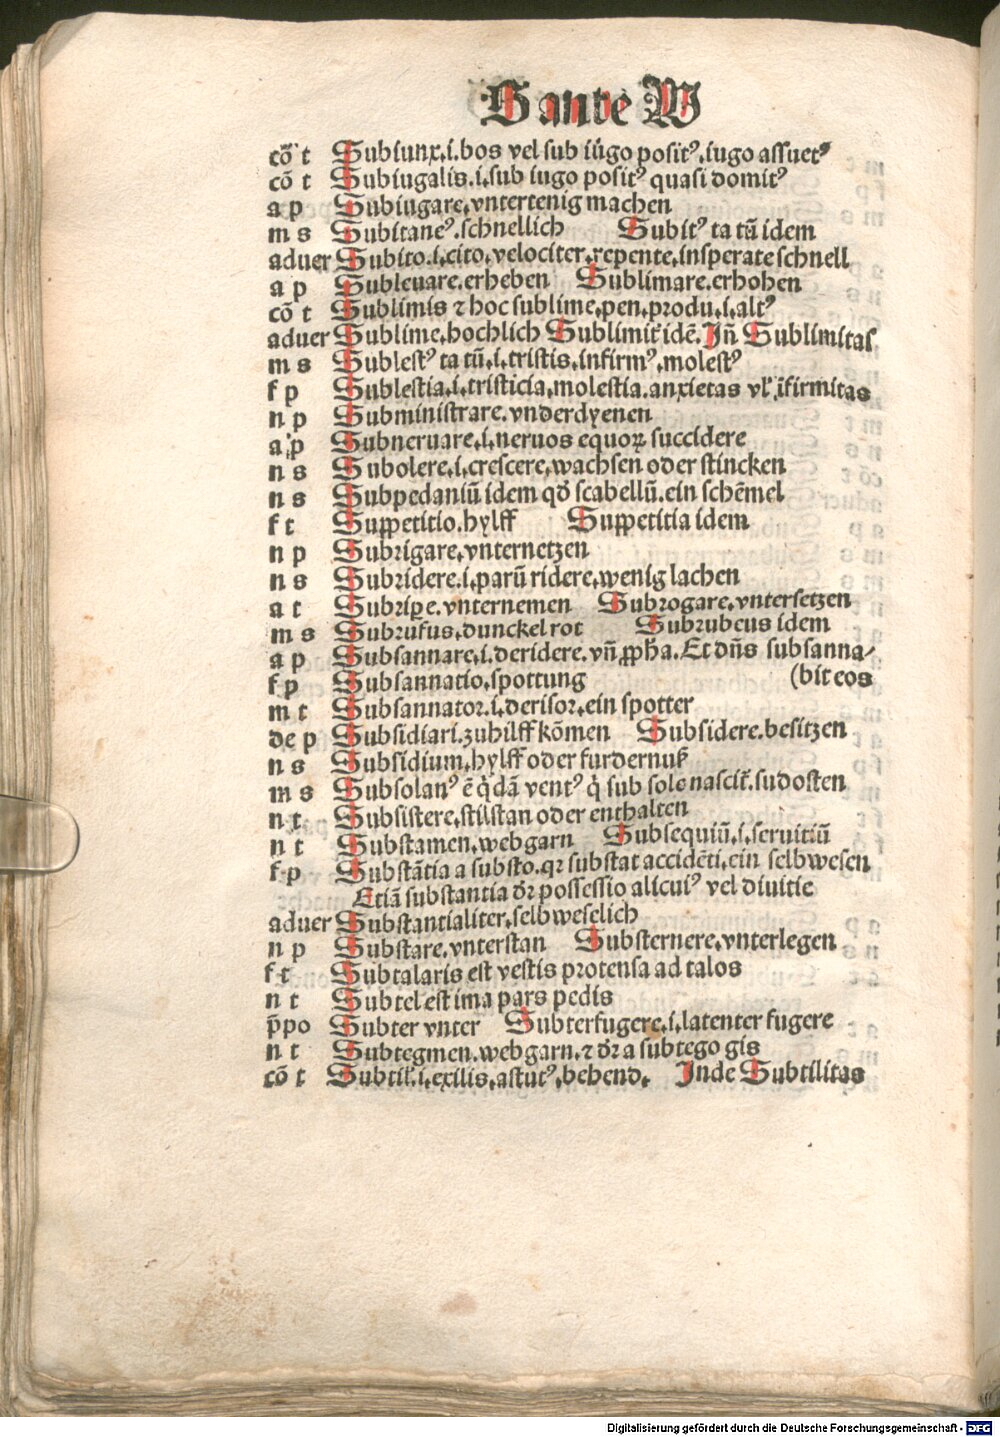 S ante W
cõ t Subiunx.i.bos vel sub iugo positꝰ.iugo assuetꝰ
cõ t Subiugalis.i.sub iugo positꝰ quasi domitꝰ
a p Subiugare.vntertenig machen
m s Subitaneꝰ.schnellich Subitꝰ ta tũ idem
aduer Subito.i.cito.velociter.repente.insperate schnell
a p Subleuare.erheben Sublimare.erhohen
cõ t Sublimis ⁊ hoc sublime.pen.produ.i.altꝰ
aduer Sublime.hochlich Sublimit̃ idẽ. Jñ Sublimitas
m s Sublestꝰ ta tũ.i.tristis.infirmꝰ.molestꝰ
f p Sublestia.i.tristicia.molestia.anxietas vl̓ ĩfirmitas
n p Subministrare.vnderdyenen
a p Subneruare.i.neruos equoꝝ succidere
n s Subolere.i.crescere.wachsen oder stincken
n s Subpedaniũ idem qď scabellũ.ein schẽmel
f t Suppetitio.hylff Suppetitia idem
n p Subrigare.vnternetzen
n s Subridere.i.parũ ridere.wenig lachen
a t Subriꝑe.vnternemen Subrogare.vntersetzen
m s Subrufus.dunckel rot Subrubeus idem
a p Subsannare.i.deridere.vñ ꝓph̃a.Et dñs subsanna⸗
f p Subsannatio.spottung (bit eos
m t Subsannator.i.derisor.ein spotter
de p Subsidiari.zuhilff kõmen Subsidere.besitzen
n s Subsidium.hylff oder furdernuß
m s Subsolanꝰ ẽ q̓dã ventꝰ q̓ sub sole nascit̃.sudosten
n t Subsistere.stilstan oder enthalten
n t Substamen.webgarn Subsequiũ.i.seruitiũ
f p Substãtia a substo.qꝛ substat accidẽti.ein selbwesen
Etiã substantia dr̃ possessio alicuiꝰ vel diuitie
aduer Substantialiter.selbweselich
n p Substare.vnterstan Substernere.vnterlegen
f t Subtalaris est vestis protensa ad talos
n t Subtel est ima pars pedis
p̃po Subter vnter Subterfugere.i.latenter fugere
n t Subtegmen.webgarn.⁊ dr̃ a subtego gis
cõ t Subtil̓.i.exilis.astutꝰ.behend. Inde Subtilitas
Digitalisierung gefördert durch die Deutsche Forschungsgemeinschaft - DFG